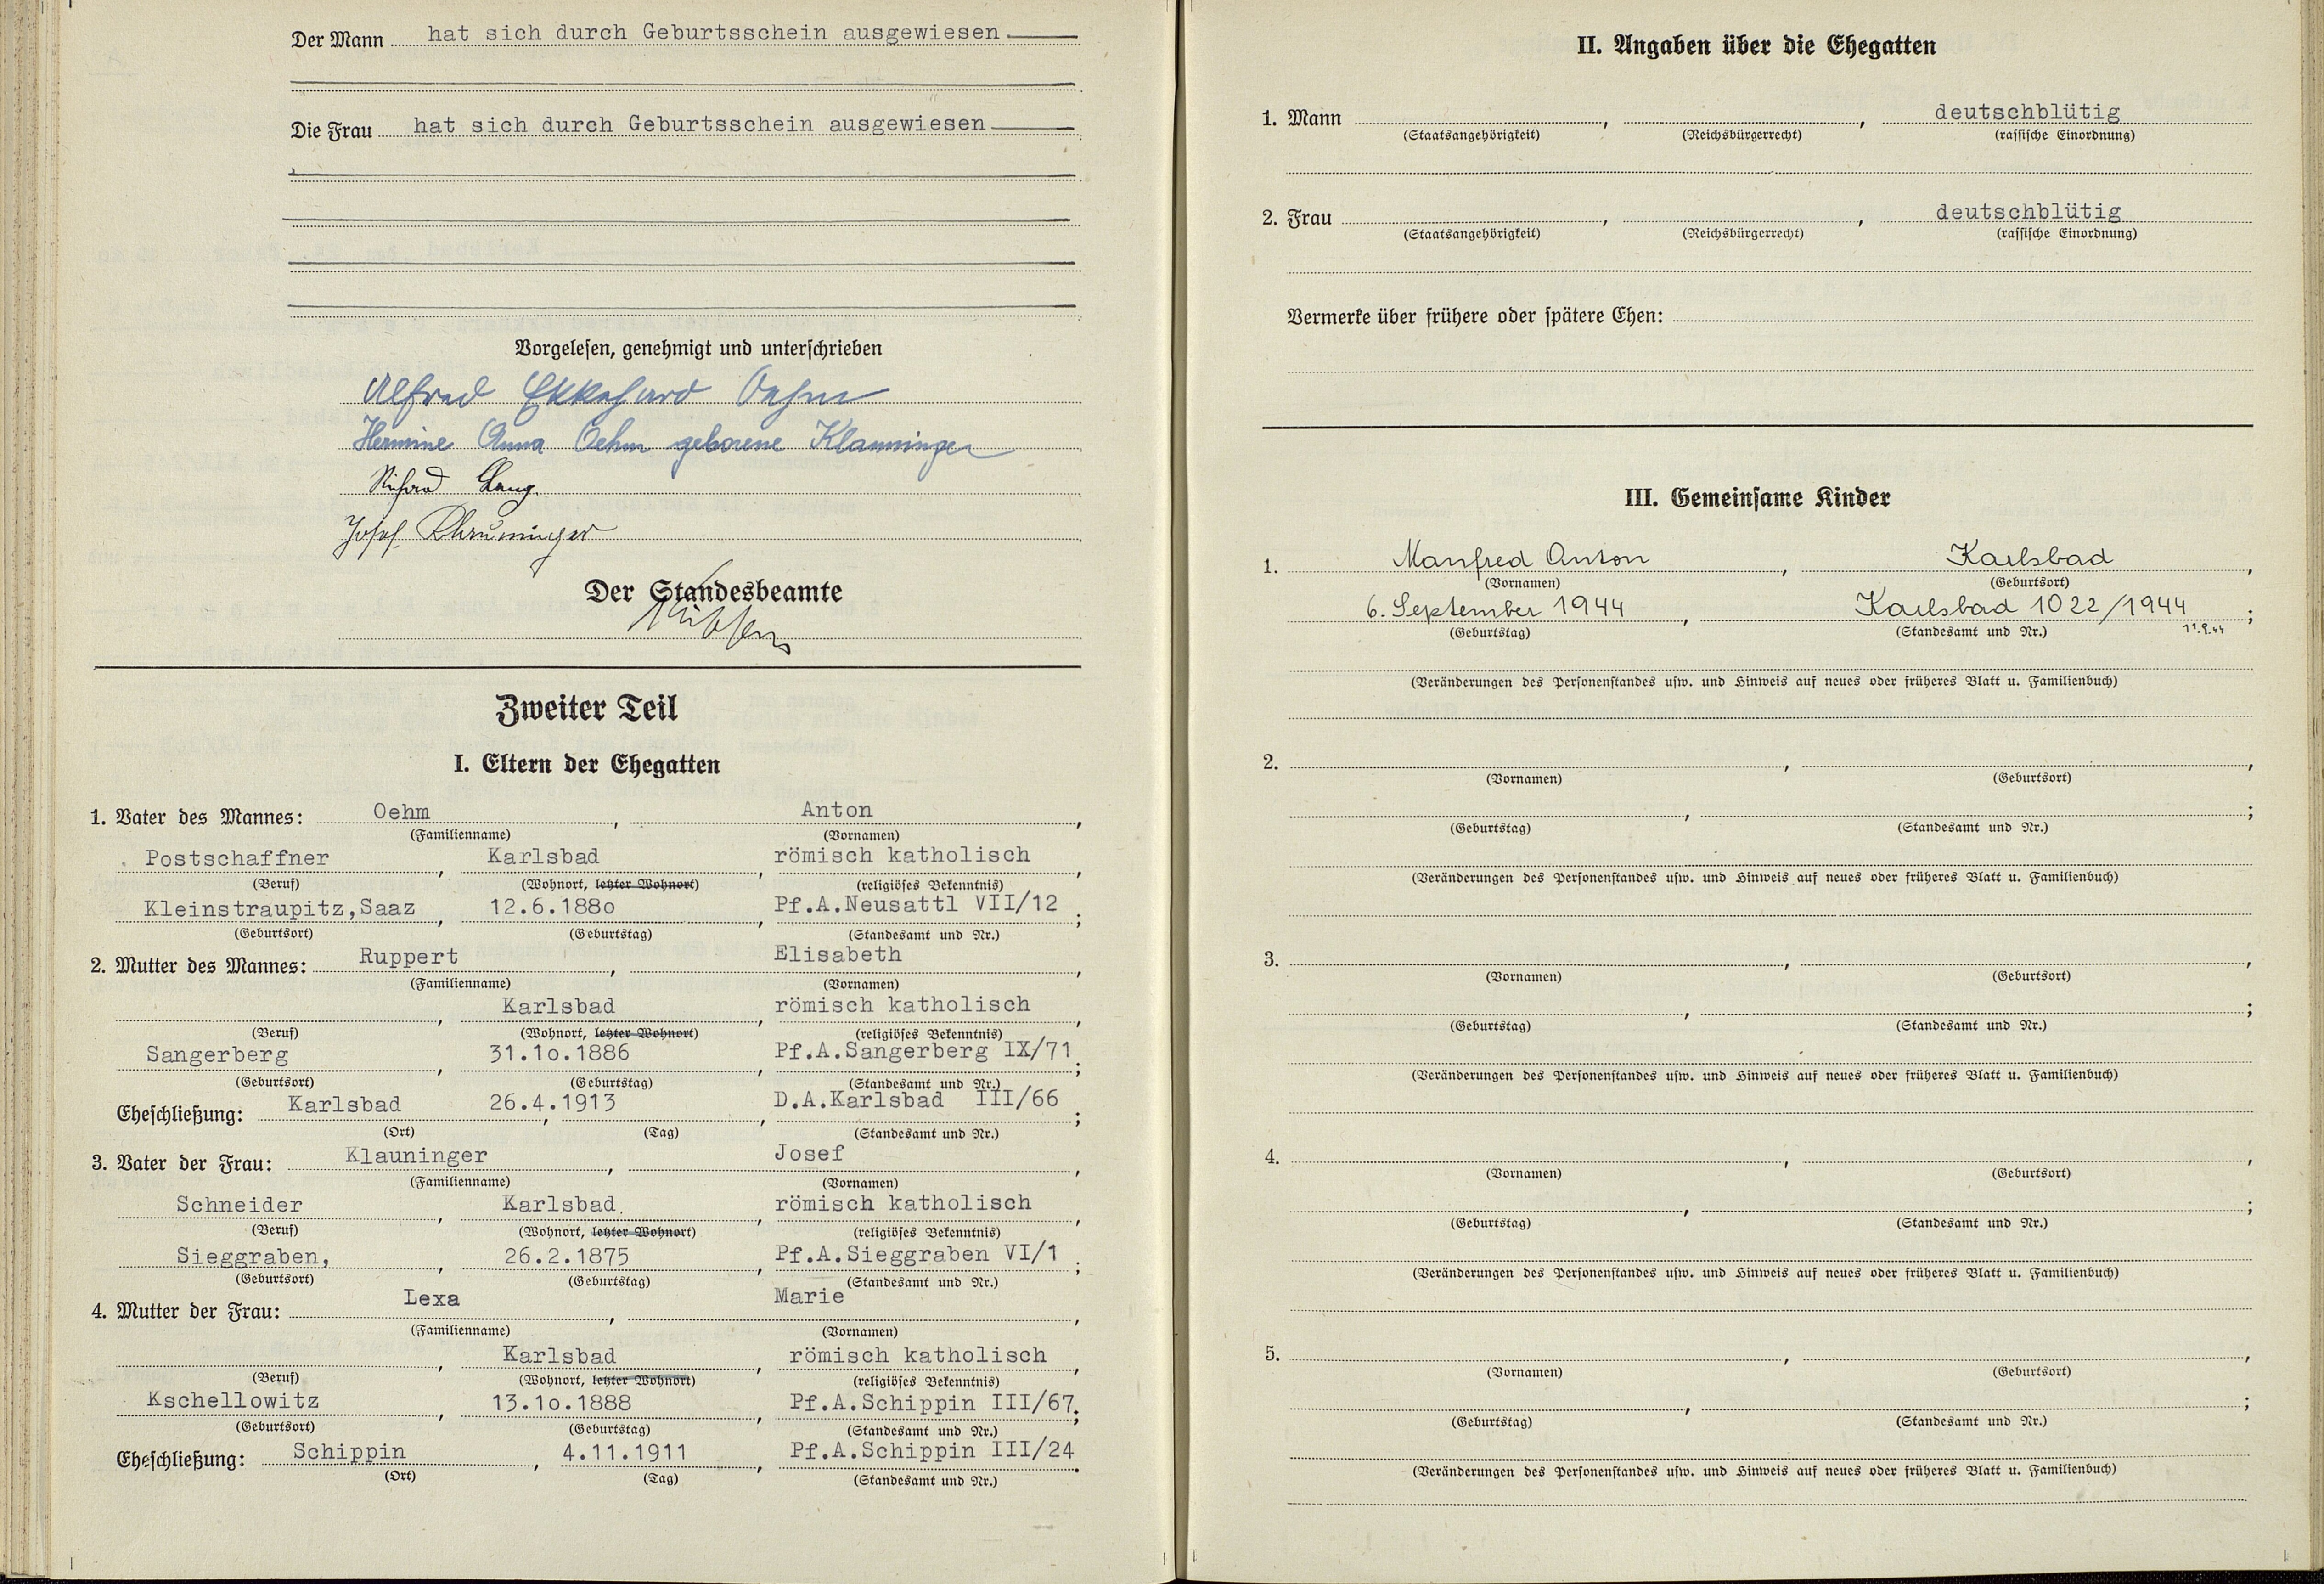 Der Mann hat sich durch Geburtsschein ausgewiesen
Die Frau hat sich durch Geburtsschein ausgewiesen
Vorgelesen, genehmigt und unterschrieben
Alfred Ekkehard Oehm
Hermine Anna Oehm geborene Klauninger
Richard Lang.
Josef Klauninger
Der Standesbeamte
Zweiter Teil
I. Eltern der Ehegatten
1. Vater des Mannes: Oehm, Anton,
(Familienname) (Vornamen)
Postschaffner, Karlsbad, römisch katholisch,
(Beruf) (Wohnort, letzter Wohnort) (religiöses Bekenntnis)
Kleinstraupitz,Saaz, 12.6.1880, Pf.A.Neusattl VII/12;
(Geburtsort) (Geburtstag) (Standesamt und Nr.)
2. Mutter des Mannes: Ruppert, Elisabeth,
(Familienname) (Vornamen)
, Karlsbad, römisch katholisch,
(Beruf) (Wohnort, letzter Wohnort) (religiöses Bekenntnis)
Sangerberg, 31.10.1886, Pf.A.Sangerberg IX/71;
(Geburtsort) (Geburtstag) (Standesamt und Nr.)
Eheschließung: Karlsbad, 26.4.1913, D.A.Karlsbad III/66;
(Ort) (Tag) (Standesamt und Nr.)
3. Vater der Frau: Klauninger, Josef,
(Familienname) (Vornamen)
Schneider, Karlsbad, römisch katholisch,
(Beruf) (Wohnort, letzter Wohnort) (religiöses Bekenntnis)
Sieggraben, , 26.2.1875, Pf.A.Sieggraben VI/1;
(Geburtsort) (Geburtstag) (Standesamt und Nr.)
4. Mutter der Frau: Lexa, Marie,
(Familienname) (Vornamen)
, Karlsbad, römisch katholisch,
(Beruf) (Wohnort, letzter Wohnort) (religiöses Bekenntnis)
Kschellowitz, 13.10.1888, Pf.A.Schippin III/67;
(Geburtsort) (Geburtstag) (Standesamt und Nr.)
Eheschließung: Schippin, 4.11.1911, Pf.A.Schippin III/24.
(Ort) (Tag) (Standesamt und Nr.)
II. Angaben über die Ehegatten
1. Mann , , deutschblütig
(Staatsangehörigkeit) (Reichsbürgerrecht) (rassische Einordnung)
2. Frau , , deutschblütig
(Staatsangehörigkeit) (Reichsbürgerrecht) (rassische Einordnung)
Vermerke über frühere oder spätere Ehen:
III. Gemeinsame Kinder
1. Manfred Anton, Karlsbad,
(Vornamen) (Geburtsort)
6. September 1944, Karlsbad 1022/1944;
(Geburtstag) (Standesamt und Nr.) 11.9.44
(Veränderungen des Personenstandes usw. und Hinweis auf neues oder früheres Blatt u. Familienbuch)
2. , ,
(Vornamen) (Geburtsort)
, ;
(Geburtstag) (Standesamt und Nr.)
(Veränderungen des Personenstandes usw. und Hinweis auf neues oder früheres Blatt u. Familienbuch)
3. , ,
(Vornamen) (Geburtsort)
, ;
(Geburtstag) (Standesamt und Nr.)
(Veränderungen des Personenstandes usw. und Hinweis auf neues oder früheres Blatt u. Familienbuch)
4. , ,
(Vornamen) (Geburtsort)
, ;
(Geburtstag) (Standesamt und Nr.)
(Veränderungen des Personenstandes usw. und Hinweis auf neues oder früheres Blatt u. Familienbuch)
5. , ,
(Vornamen) (Geburtsort)
, ;
(Geburtstag) (Standesamt und Nr.)
(Veränderungen des Personenstandes usw. und Hinweis auf neues oder früheres Blatt u. Familienbuch)